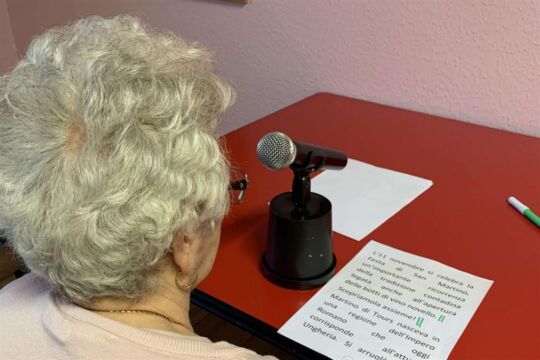 L'11 novembre si celebra la
Festa di San Martino,
un'importante ricorrenza
della tradizione contadina
legata anche all'apertura
delle botti di vino novello.
Scopriamola assieme!
Martino di Tours nasceva in
una regione dell'Impero
Romano che oggi
corrisponde all'att
Ungheria. Si arruol